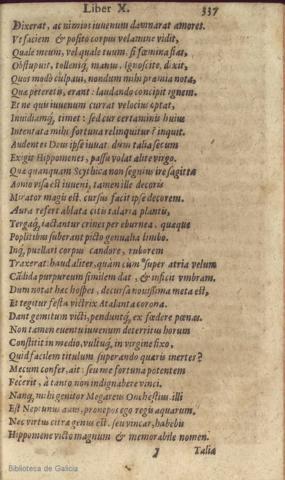 Liber X. 337
Dixerat, ac nimios iuuenum damnarat amores.
Vt faciem & posito corpus velamine vidit,
Quale meum, vel quale tuum, si fœmina fias,
Obstupuit, tollensq; manus, Ignoscite, dixit,
Quos modò culpaui, nondum mihi præmia nota,
Quæ peteretis, erant: laudando concipit ignem.
Et ne quis iuuenum currat velocius optat,
Inuidiamq; timet: sed cur certaminis huius
Intentata mihi fortuna relinquitur? inquit.
Audentes Deus ipse iuuat. dum talia secum
Exigit Hippomenes, passu volat alite virgo.
Quæ quanquam Scythica non segnius ire sagitta
Aonio visa est iuueni, tamen ille decorē
Mirator magis est. cursus facit ipse decorem.
Aura refert ablata citis talaria plantis,
Tergaq; iactantur crines per eburnea, quæque
Poplitibus suberant picto genualia limbo.
Inq; puellari corpus candore, ruborem
Traxerat: haud aliter, quam cum super atria velum
Cādida purpureum similem dat, & inficit vmbram.
Dum notat hæc hospes, decursa nouissima meta est,
Et tegitur festa victrix Atalanta corona.
Dant gemitum victi, penduntq; ex fœdere pœnas.
Non tamen euentu iuuenum deterritus horum
Constitit in medio, vultuq; in virgine fixo,
Quid facilem titulum superando quæris inertes?
Mecum confer, ait: seu me fortuna potentem
Fecerit, à tanto non indignabere vinci.
Nanq; mihi genitor Megareus Onchestius. illi
Est Neptunus auus, pronepos ego regis aquarum,
Nec virtus citra genus est. seu vincar, habebis
Hippomene victo magnum & memorabile nomen.
Talia
Biblioteca de Galicia